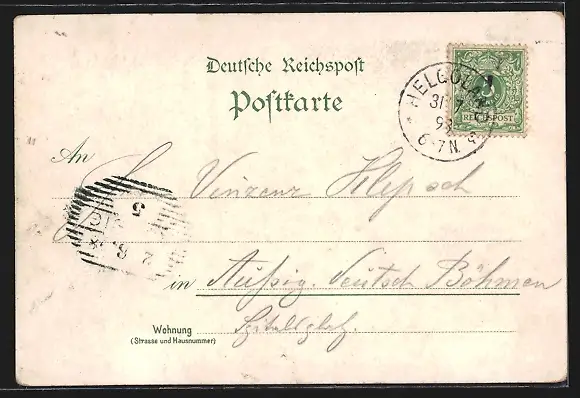 Deutsche Reichspost
Postkarte
5
REICHSPOST
HELGOLAND
31 7
6-7 N.
An Vinzenz Klepsch
5
2 8
in Aussig. Deutsch Böhmen
Wohnung
(Strasse und Hausnummer)